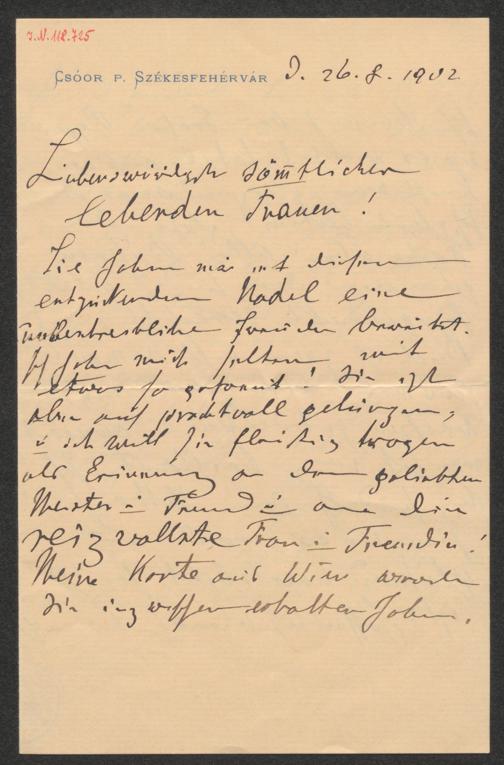 I.N.118.725
CSÓOR P. SZÉKESFEHÉRVÁR D. 26.8.1902
Liebenswürdigste sämtlicher
lebenden Frauen!
Sie haben mir mit dieser
entzückenden Nadel eine
unbeschreibliche Freude bereitet.
Ich habe mich selten mit
etwas so gefreut! Sie ist
aber auch prachtvoll gelungen,
u ich will sie fleißig tragen
als Erinnerung an den geliebten
Meister u Freund u an die
reizvollste Frau u Freundin!
Meine Karte aus Wien werden
Sie inzwischen erhalten haben.